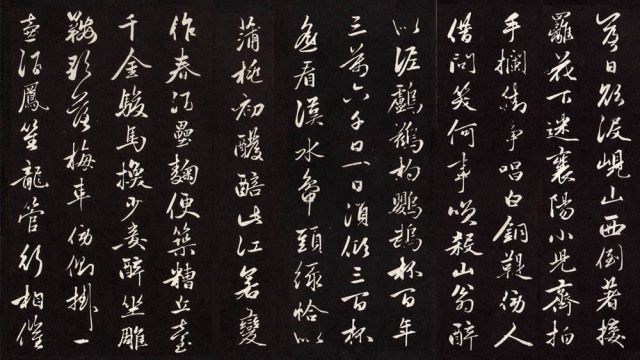 落日欲没峴山西倒著接
䍦花下迷襄陽小兒齊拍
手攔街爭唱白銅鞮傍人
借問笑何事笑殺山翁醉
似泥鸕鶿杓鸚鵡杯百年
三萬六千日一日須傾三百杯
遙看漢水鴨頭綠恰似
蒲桃初醱醅此江若變
作春酒壘麴便築糟丘臺
千金駿馬換少妾醉坐雕
鞍歌落梅車傍側掛一
壺酒鳳笙龍管行相催